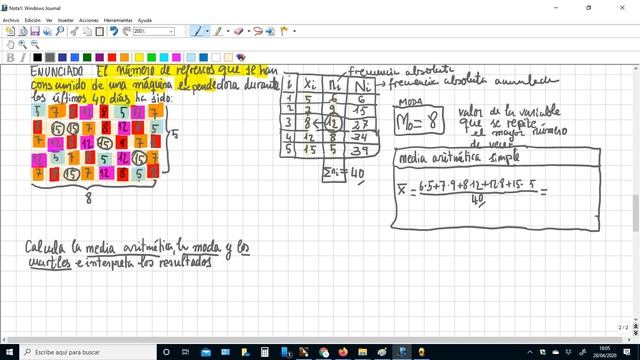 Nota1: Windows Journal
Archivo Edición Ver Insertar Acciones Herramientas Ayuda
200%
ENUNCIADO El número de refrescos que se han
consumido de una máquina expendedora durante
los últimos 40 días ha sido:
5
8
i Xi ni Ni
1 5 6 6
2 7 9 15
3 8 12 27
4 12 8 34
5 15 5 39
Σni = 40
frecuencia absoluta
frecuencia absoluta acumulada
MODA
Mo = 8
valor de la variable
que se repite
el mayor número
de veces
media aritmética simple
x = 6·5+7·9+8·12+12·8+15·5
40
=
Calcula la media aritmética, la moda y los
cuartiles e interpreta los resultados
2 / 2
Escribe aquí para buscar
18:05
28/04/2020